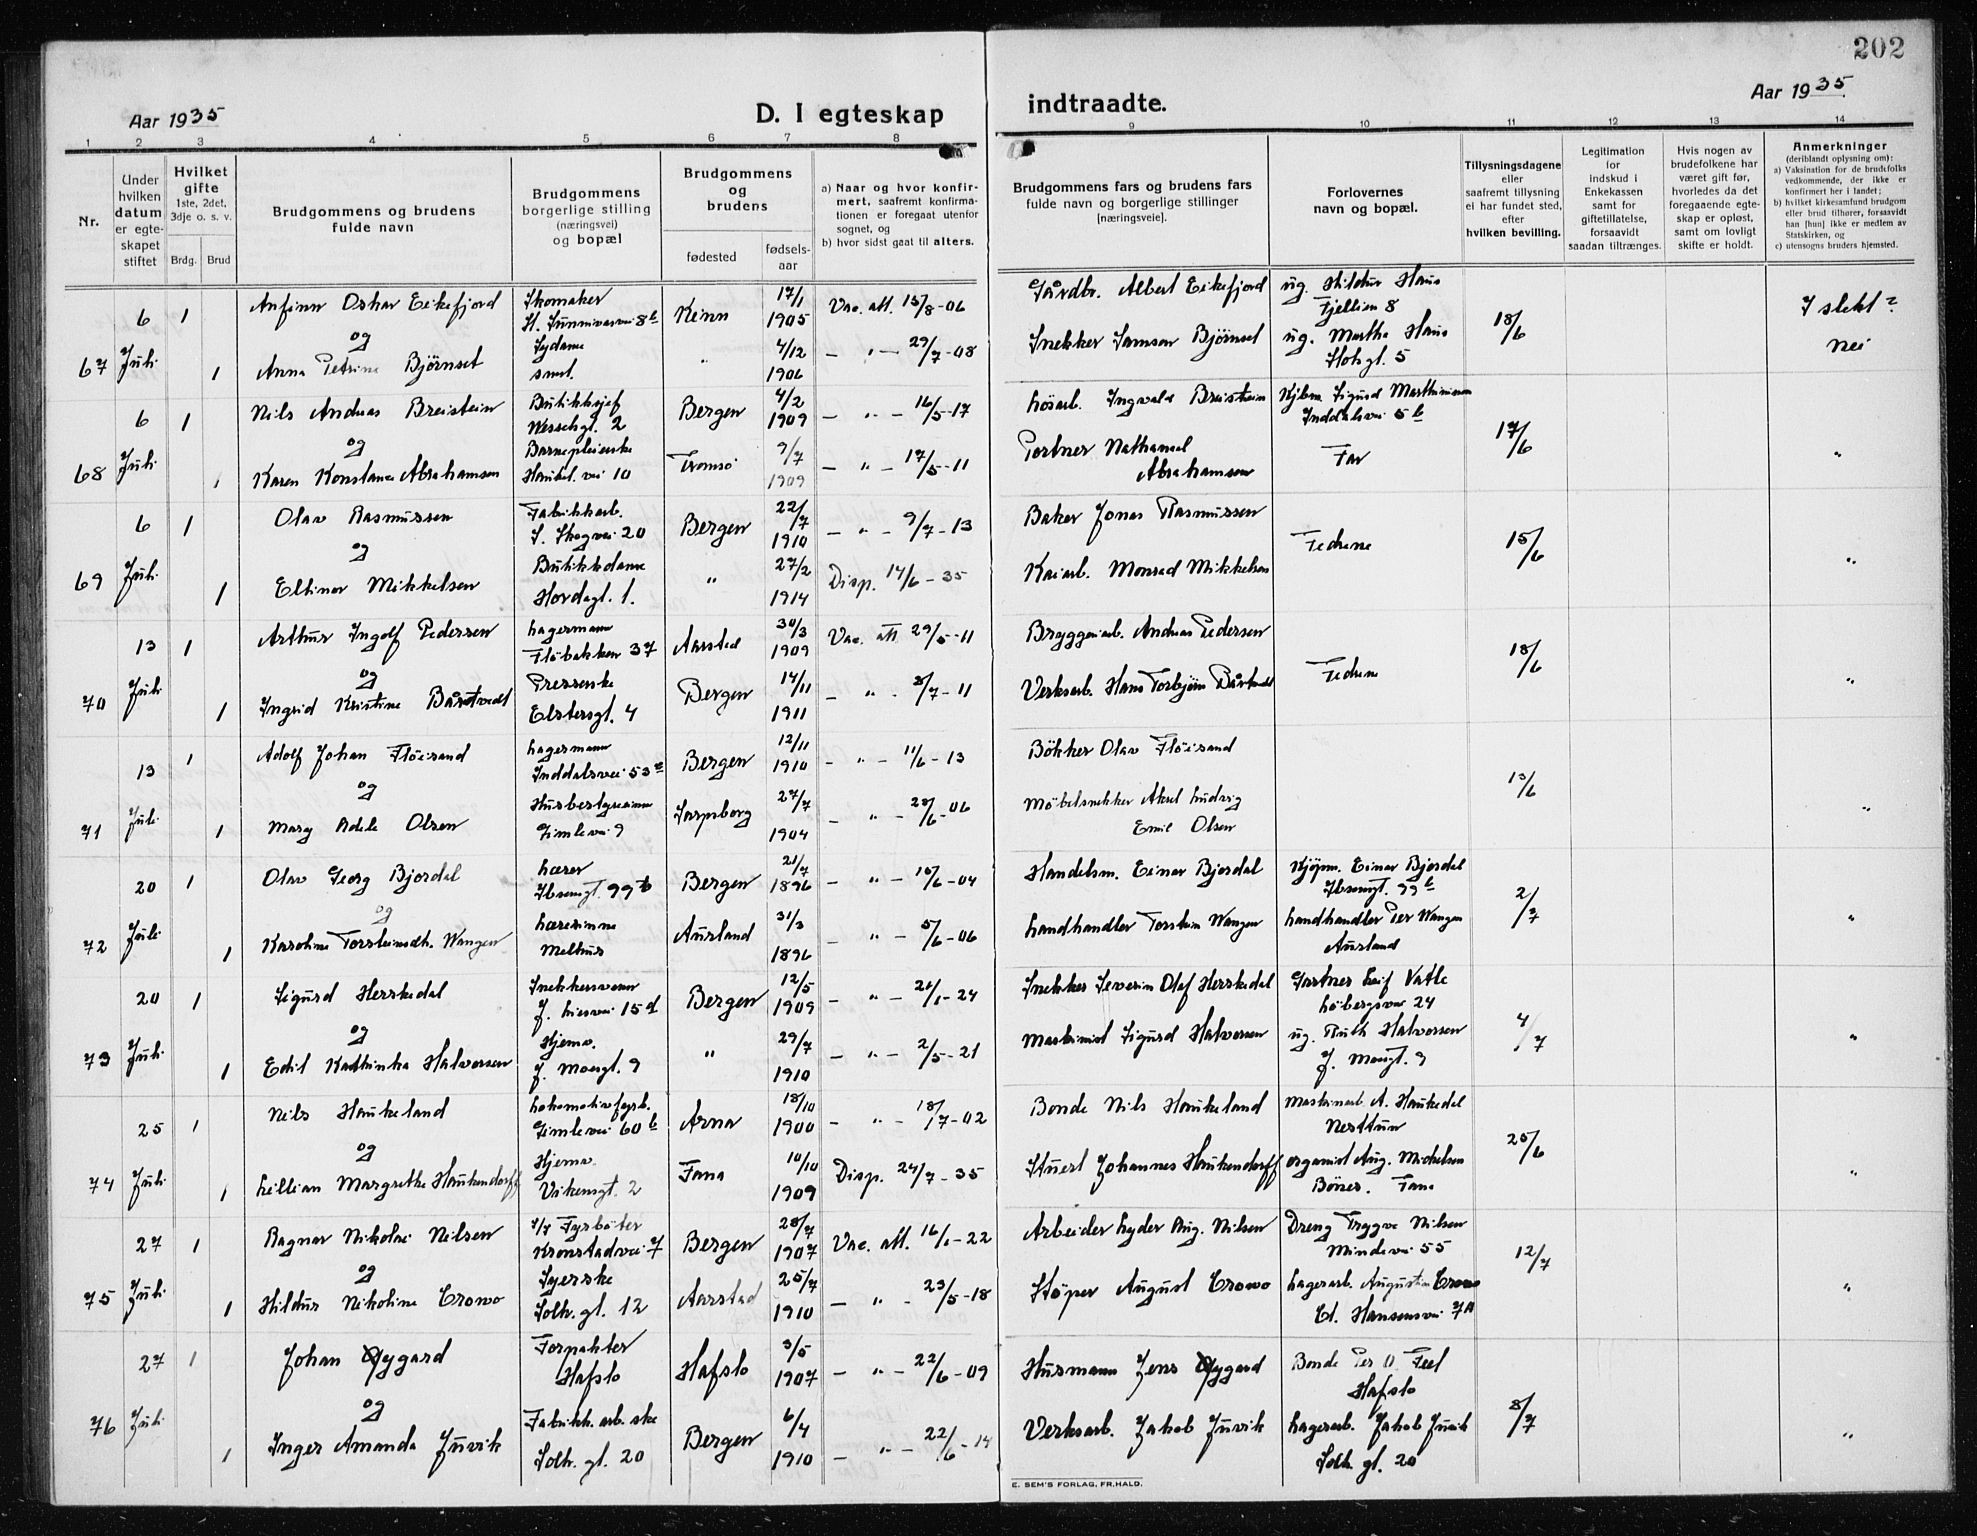 202
Aar 1935
D. I egteskap indtraadte.
Aar 1935
1 2 3 4 5 6 7 8 9 10 11 12 13 14
Nr.
Under hvilken datum er egteskapet stiftet
Hvilket gifte 1ste, 2det, 3dje o. s. v.
Brdg. Brud
Brudgommens og brudens fulde navn
Brudgommens borgerlige stilling (næringsvei) og bopæl
Brudgommens og brudens
fødested
fødselsaar
a) Naar og hvor konfirmert, saafremt konfirmationen er foregaat utenfor sognet, og
b) hvor sidst gaat til alters.
Brudgommens fars og brudens fars fulde navn og borgerlige stillinger [næringsveie].
Forlovernes navn og bopæl.
Tillysningsdagene eller saafremt tillysning ei har fundet sted, efter hvilken bevilling.
Legitimation for indskud i Enkekassen samt for giftetillatelse, forsaavidt saadan tiltrænges.
Hvis nogen av brudefolkene har været gift før, hvorledes da det foregaaende egteskap er opløst, samt om lovligt skifte er holdt.
Anmerkninger (deriblandt oplysning om):
a) Vaksination for de brudefolks vedkommende, der ikke er konfirmert her i landet;
b) hvilket kirkesamfund brudgom eller brud tilhører, forsaavidt han [hun] ikke er medlem av Statskirken, og
c) utensogns bruders hjemsted.
67 6 Juli 1 Anfinn Oskar Eikefjord Skomaker St. Sunnivasvei 8b Kinn 17/1 1905 Vac. att. 15/8-06 Gårdbr. Albert Eikefjord ug. Hildur Haus Fjellien 8 18/6 I slekt?
og
1 Anna Petrina Bjørnset Sydame smst. " 4/12 1906 – " – 29/7-08 Snekker Samson Bjørnset ug. Martha Haus gt. 5 nei
68 6 Juli 1 Nils Andreas Breistein Butikksjef Wesselsgt. 2 Bergen 4/2 1909 – " – 16/5-17 Løsarb. Ingvald Breistein Kjbm. Sigurd Marthinussen Inddalsvei 5b 17/6 "
og
1 Karen Konstance Abrahamsen Barnepleierske Haukel. vei 10 Tromsö 9/7 1909 – " – 17/5-11 Portner Nathanael Abrahamsen Far
69 6 Juli 1 Olav Rasmussen Fabrikkarb. S. Skogvei 20 Bergen 22/7 1910 – " – 9/7-13 Baker Jonas Rasmussen Fedrene 15/6 "
og
1 Ellinor Mikkelsen Butikkdame Hordagt. 1. " 27/2 1914 Disp. 14/6-35 Kaiarb. Monrad Mikkelsen
70 13 Juli 1 Arthur Ingolf Pedersen Lagermann Fløbakken 37 Aarstad 30/3 1909 Vac. att 29/5-11 Bryggeriarb. Andreas Pedersen Fedrene 18/6 "
og
1 Ingrid Kristine Bårtvedt Presserske Elstersgt. 4 Bergen 14/11 1911 – " – 8/7-11 Verksarb. Hans Torbjørn Bårtvedt
71 13 Juli 1 Adolf Johan Fløisand Lagermann Inddalsvei 53 Bergen 12/11 1910 – " – 11/6-13 Bökker Olav Flöisand 13/6 "
og
1 Mary Adele Olsen Husbestyrerinne Gimlevei 9 Sarpsborg 27/7 1904 – " – 28/6-06 Möbelsnekker Aksel Ludvig Emil Olsen
72 20 Juli 1 Olav Georg Bjordal Lærer Ibsensgt. 99b Bergen 21/7 1896 – " – 15/6-04 Handelsm. Einar Bjordal Kjøpm. Einar Bjordal Ibsensgt. 99b 2/7 "
og
1 Karoline Torsteinsdtr. Wangen Lærerinne Melhus Aurland 31/3 1896 – " – 5/6-06 Landhandler Torstein Wangen Landhandler Per Wangen Aurland
73 20 Juli 1 Sigurd Herskedal Snekkersvenn J. Liesvei 15d Bergen 12/5 1909 – " – 21/1-24 Snekker Severin Olaf Herskedal Gartner Leif Vatle Löbergsvei 24 4/7 "
og
1 Edil Kathinka Halvorsen Hjemv. J. Moesgt. 9 " 29/7 1910 – " – 2/5-21 Maskinist Sigurd Halvorsen ug. Ruth Halvorsen J. Moesgt. 9
74 25 Juli 1 Nils Haukeland Lokomotivfyrb. Gimlevei 60b Arna 18/10 1900 – " – 18/7-02 Bonde Nils Haukeland Maskinarb. A. Haukedal Nesttun 25/6 "
og
1 Lillian Margrethe Haukendorff Hjemv. Vikensgt. 2 Fana 10/10 1909 Disp. 24/7-35 Stuert Johannes Haukendorff organist Aug. Michelsen Bönes. Fana
75 27 Juli 1 Ragnar Nikolai Nilsen Fyrböter Kronstadvei 7 Bergen 28/7 1907 Vac. att. 16/1-22 Arbeider Lyder Aug. Nilsen Dreng Trygve Nilsen Mindevei 55 12/7 "
og
1 Hildur Nikoline Crowo Syerske Solh. gt. 12 Aarstad 25/7 1910 – " – 23/5-18 Stöper August Crowo Lagerarb. Augustin Crowo Hansensvei 7A
76 27 Juli 1 Johan Øygard Forpakter Hafslo Hafslo 3/5 1907 – " – 22/6-09 Husmann Jens Øygard Bonde Per O. Feet Hafslo 8/7 "
og
1 Inger Amanda Juvik Fabrikk.arb.ske Solh. gt. 20 Bergen 6/4 1910 – " – 22/6-14 Verksarb. Jakob Juvik Lagerarb. Jakob Juvik Solh. gt. 20
E. SEM'S FORLAG, FR.HALD.